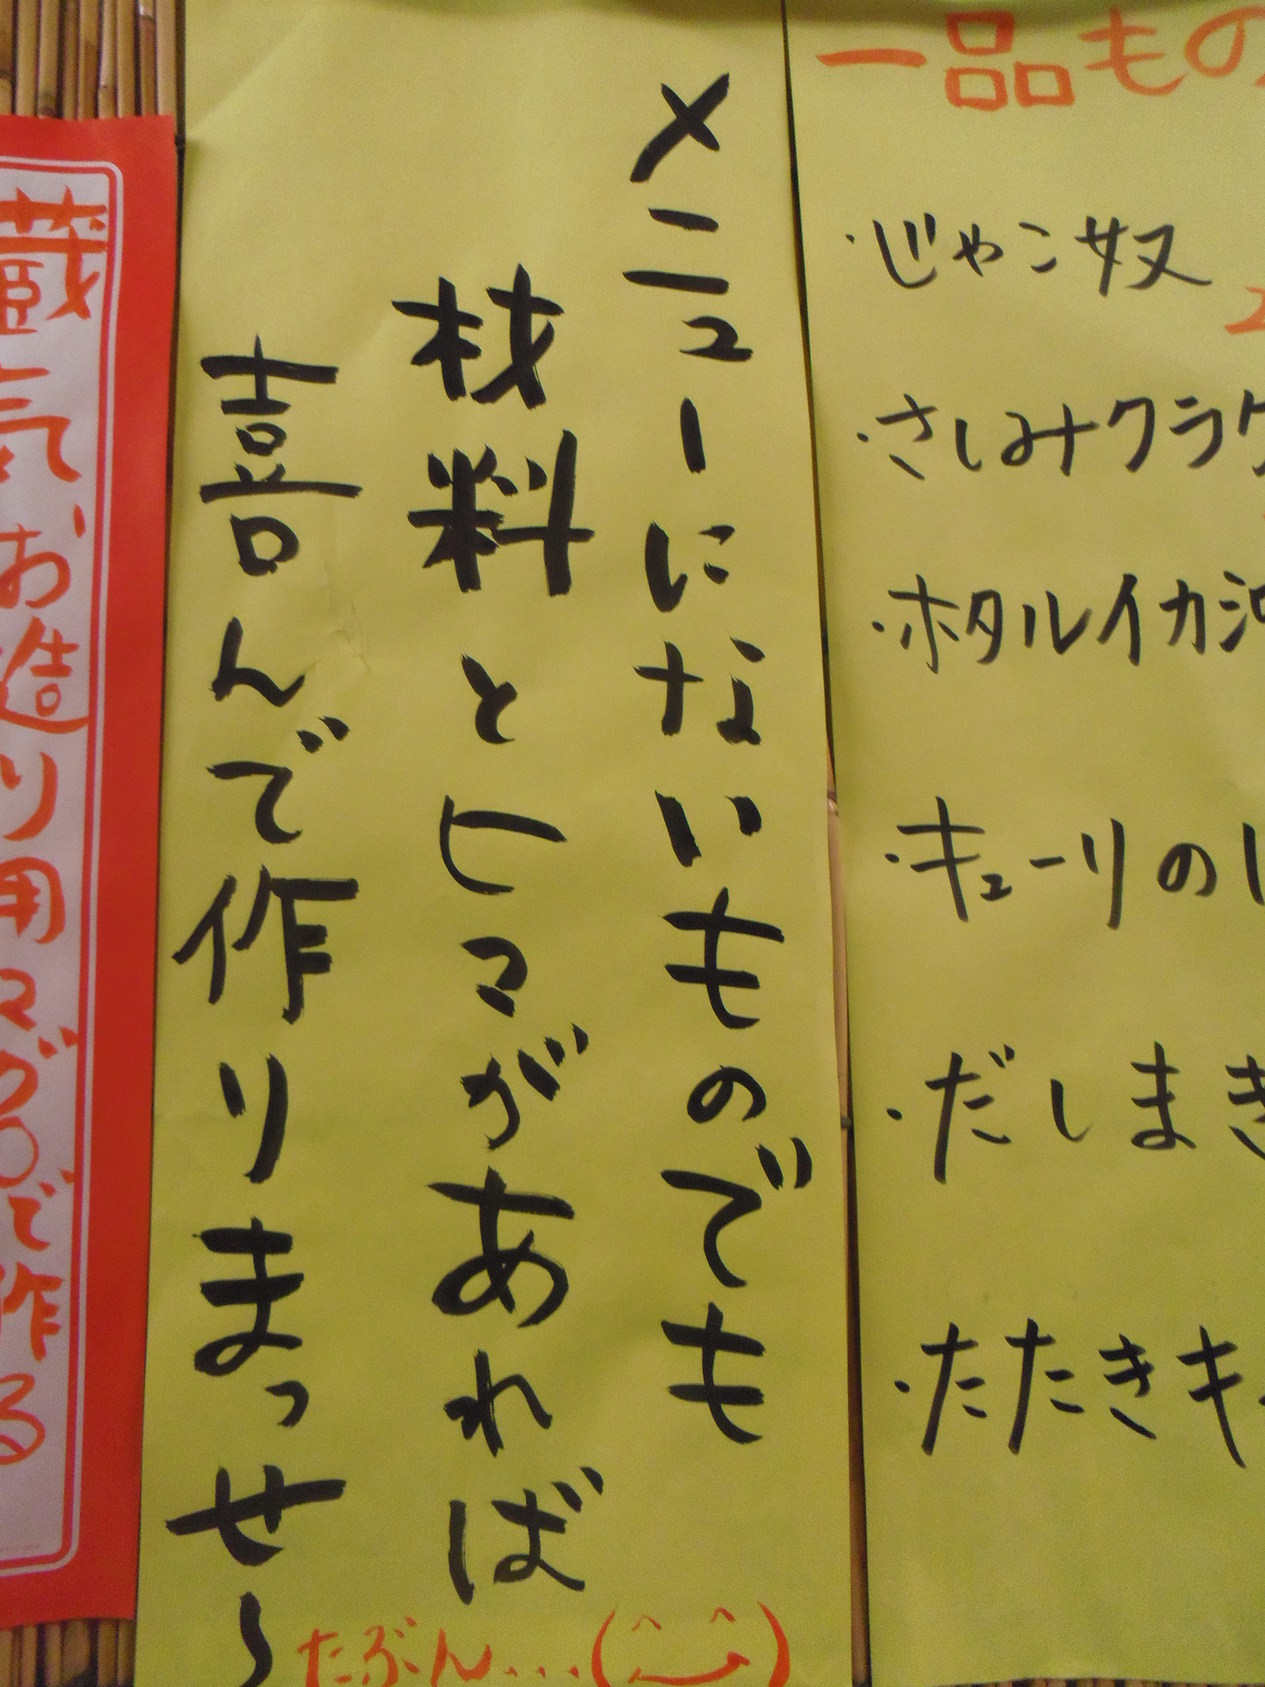 一品もの
・じゃこ奴
・さしみクラゲ
・ホタルイカ沖
・キューリの
・だしまき
・たたきキ
メニューにないものでも
材料とヒマがあれば
喜んで作りまっせ〜
たぶん...(^_^)
蔵気お造り用マグロで作る